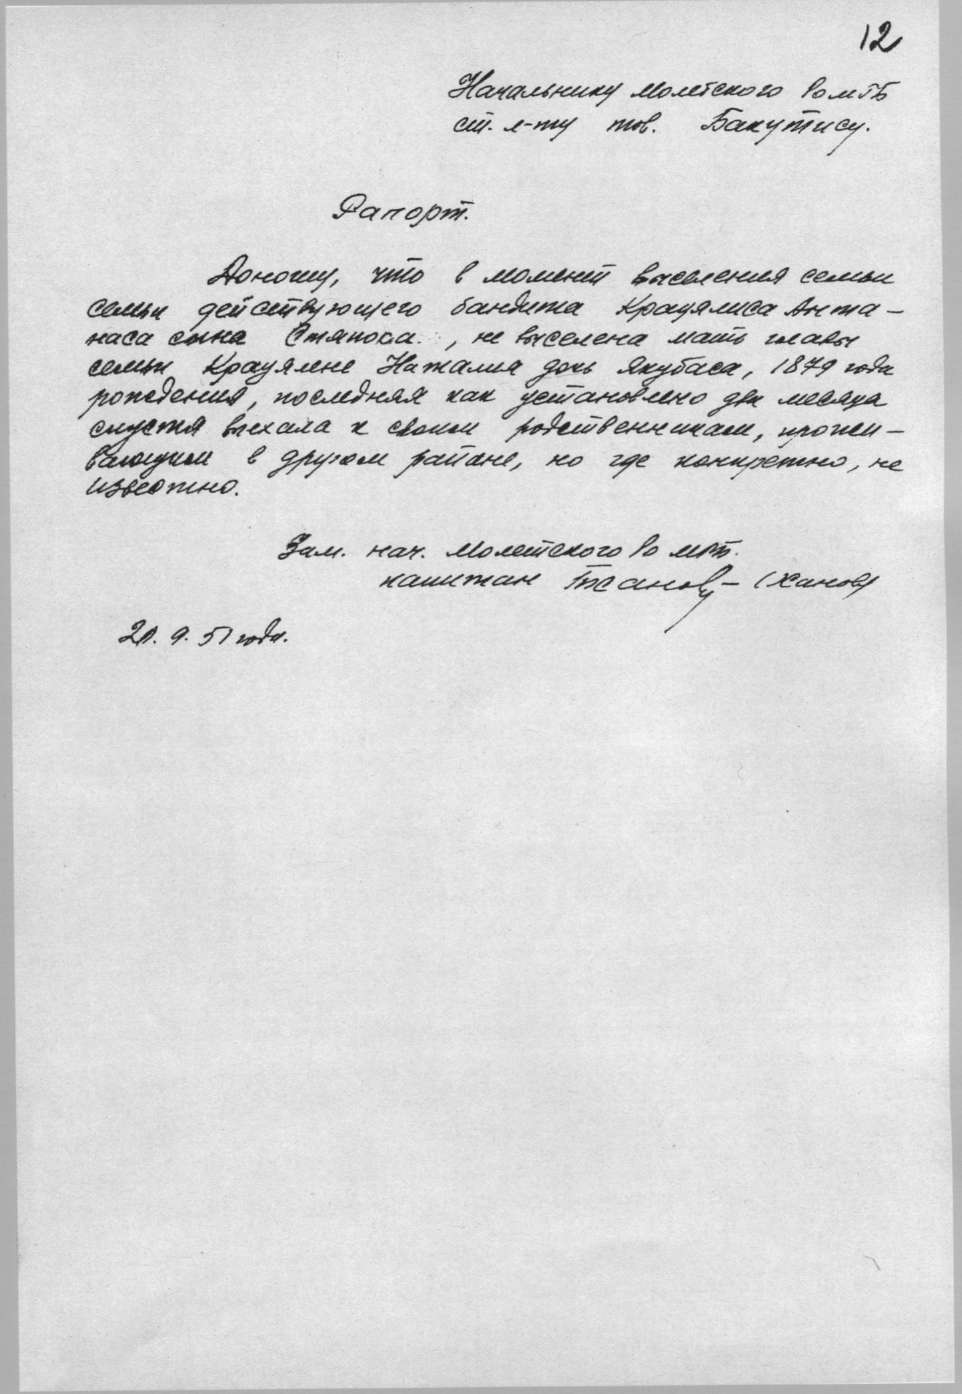 12
Начальнику Молетского РОМГБ
ст. л-ту тов. Бакутису.
Рапорт.
Доношу, что в момент выселения семьи
семьи действующего бандита Крауялиса Анта-
наса сына Стяпона, не выселена мать главы
семьи Крауялене Наталия дочь Якубаса, 1879 года
рождения, последняя как установлено два месяца
спустя выехала к своим родственникам, прожи-
вающим в другом районе, но где конкретно, не
известно.
Зам. нач. Молетского РО МГБ.
капитан (Ханов)
20. 9. 51 года.